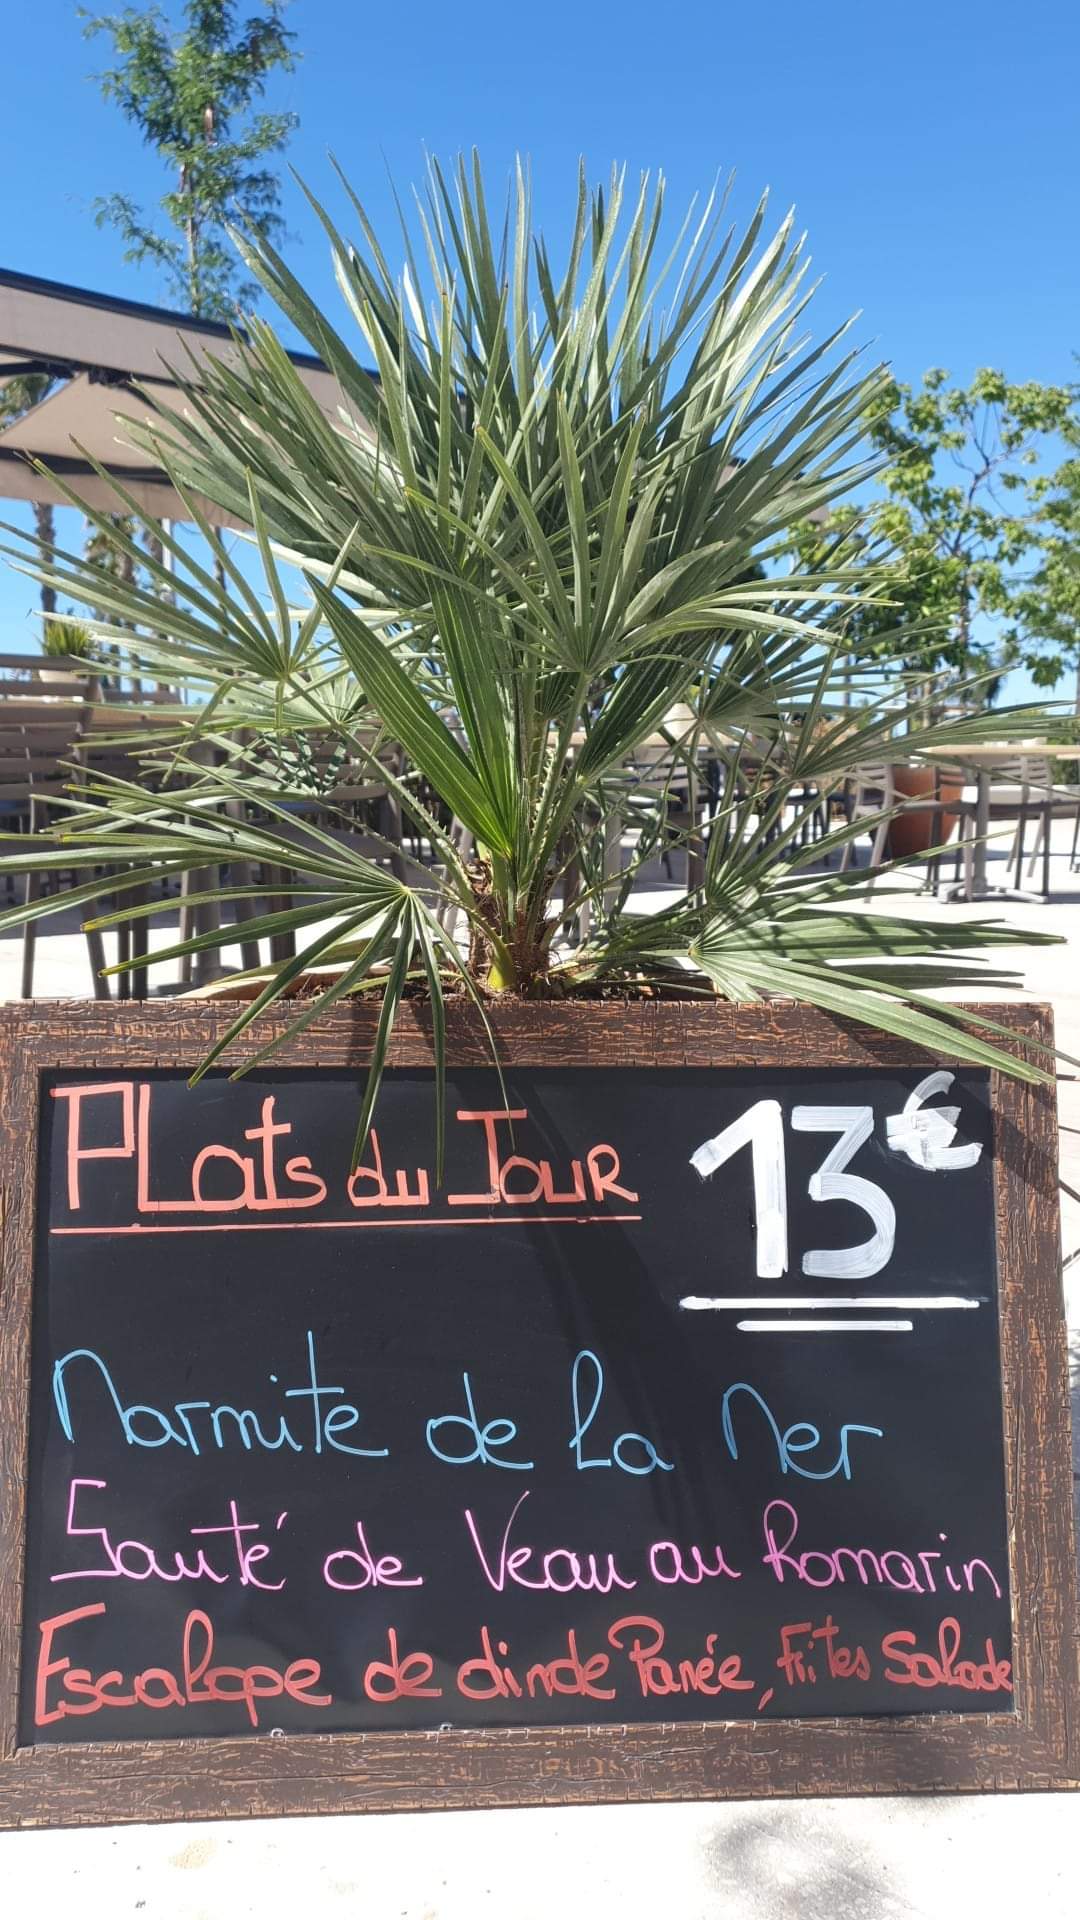 Plats du Jour 13€
Marmite de la Mer
Sauté de Veau au Romarin
Escalope de dinde Panée, Frites Salade